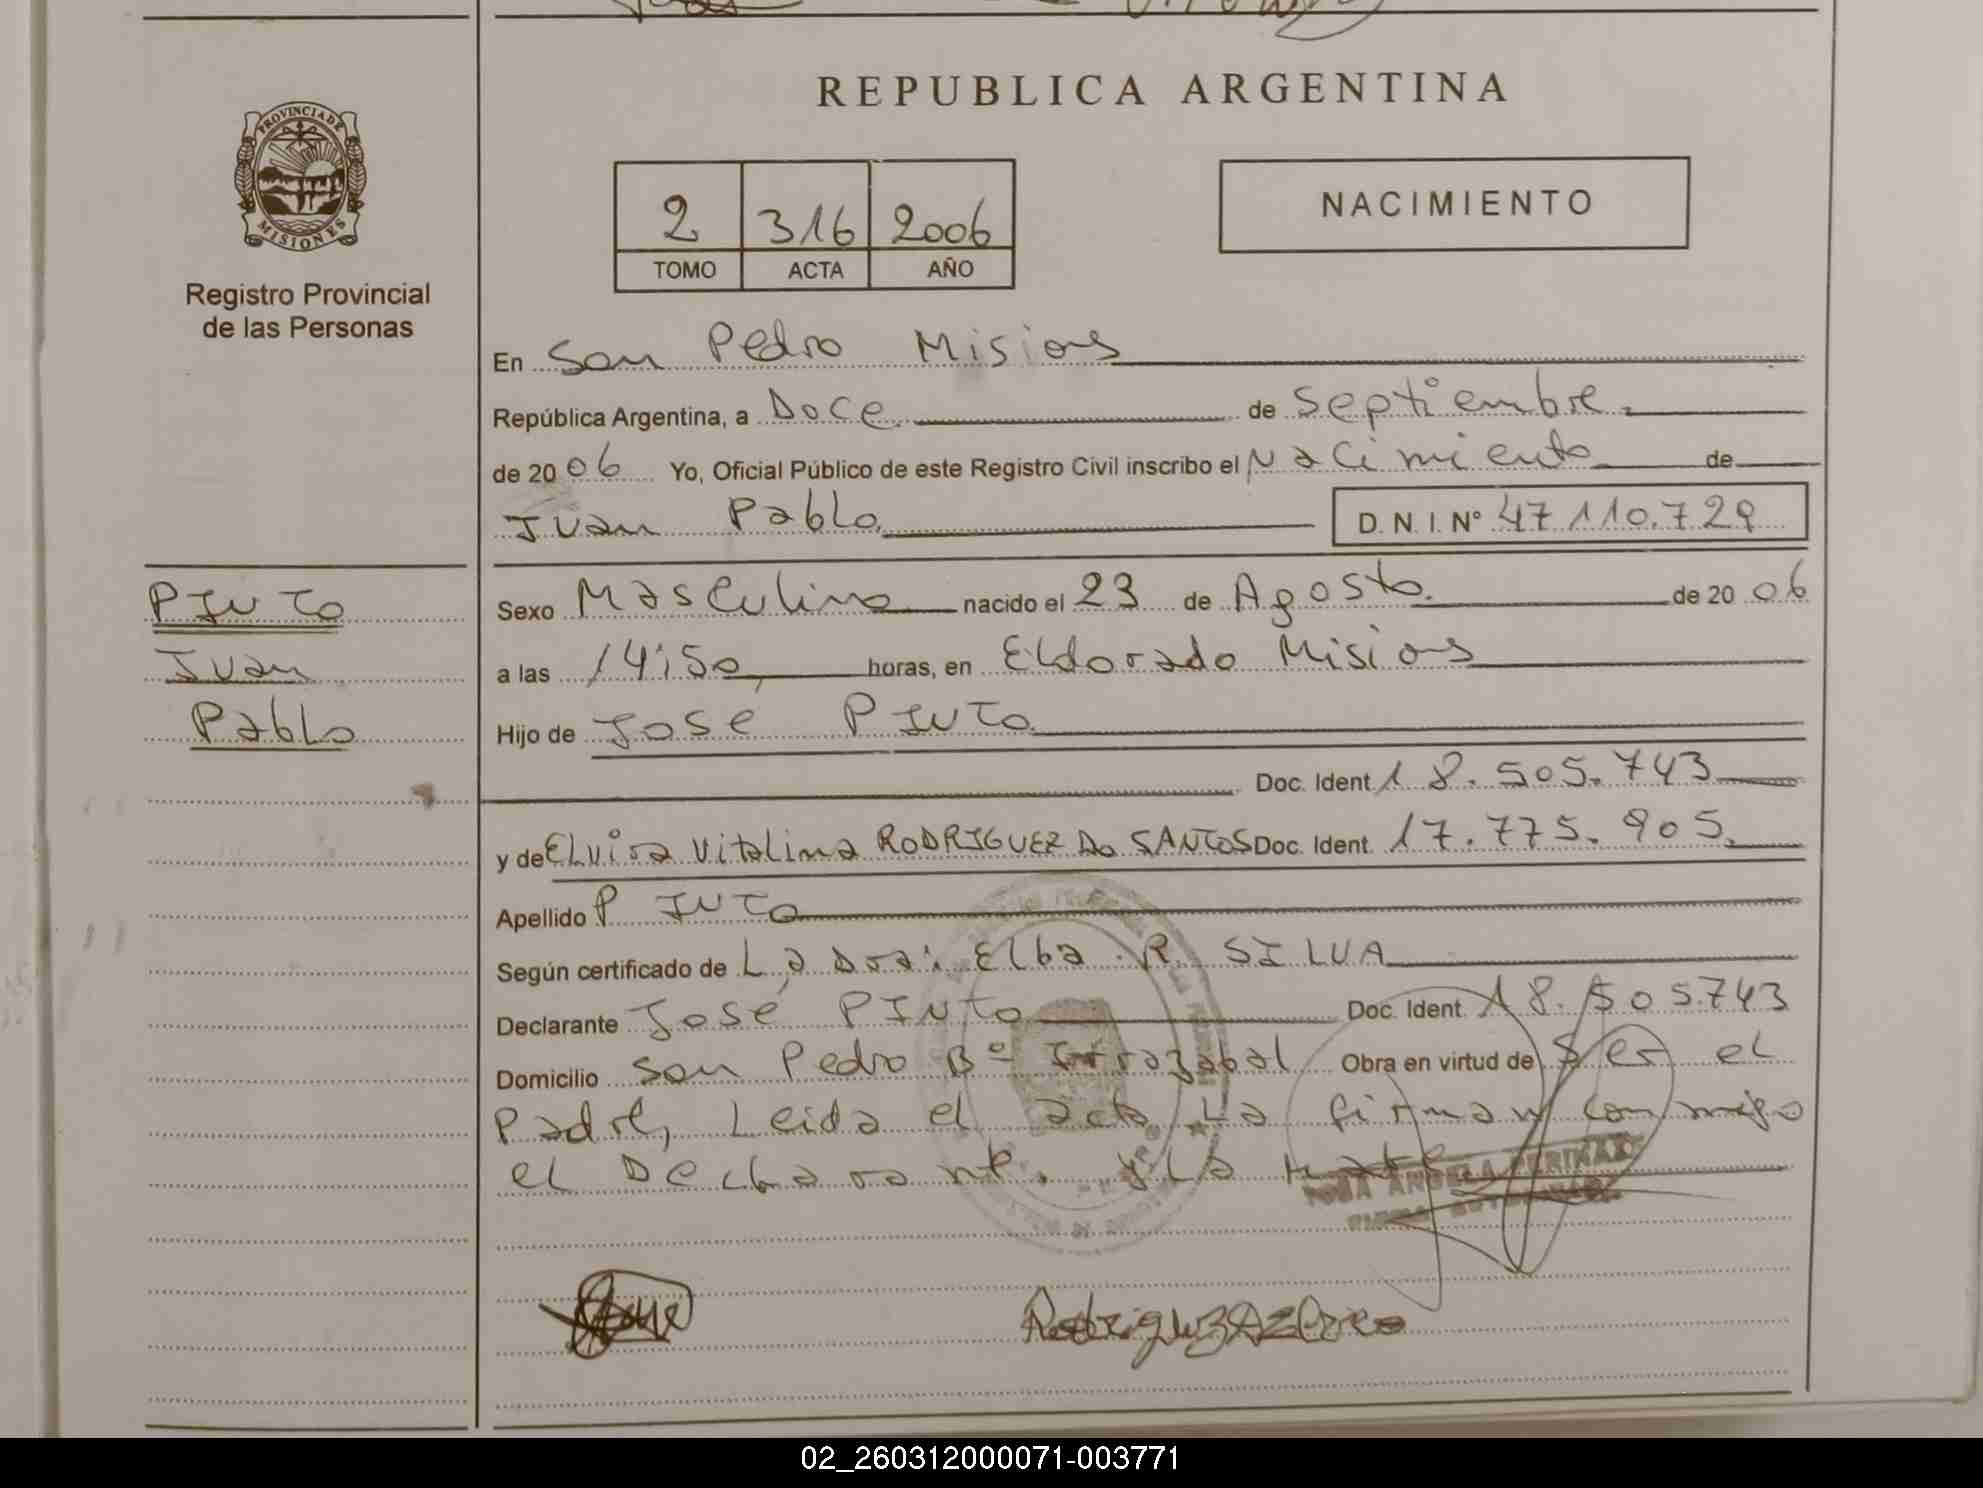 REPUBLICA ARGENTINA
PROVINCIA DE MISIONES
Registro Provincial
de las Personas
2 316 2006
TOMO ACTA AÑO
NACIMIENTO
En San Pedro Misiones
República Argentina, a Doce de Septiembre
de 2006 Yo, Oficial Público de este Registro Civil inscribo el Nacimiento de
Juan Pablo D. N. I. Nº 47110.729
PINTO
Juan
Pablo
Sexo Masculino nacido el 23 de Agosto de 2006
a las 14:50 horas, en Eldorado Misiones
Hijo de José PINTO
Doc. Ident 18.505.743
y de Elvira Vitalina RODRIGUEZ Do SANTOS Doc. Ident. 17.775.905
Apellido PINTO
Según certificado de La Dra: Elba R. SILVA
Declarante José PINTO Doc. Ident. 18.505.743
Domicilio San Pedro Bº Irrazabal Obra en virtud de Ser el
Padre, Leida el acta La firman conmigo
el Declarante. y La
02_260312000071-003771